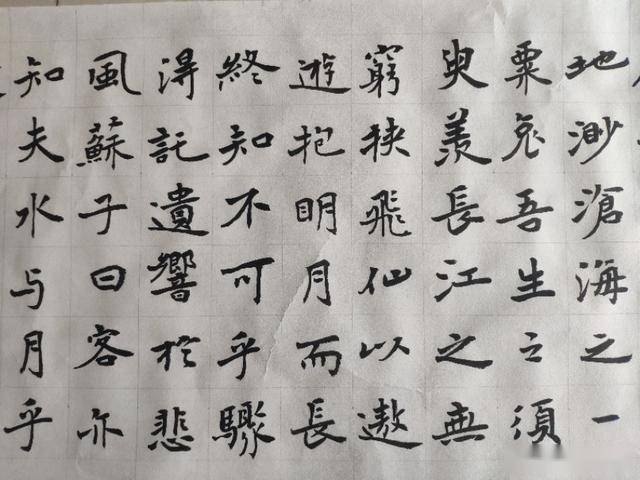 地渺滄海之一
粟哀吾生之須
臾羨長江之無
窮挾飛仙以遨
遊抱明月而長
終知不可乎驟
得託遺響於悲
風蘇子曰客亦
知夫水与月乎